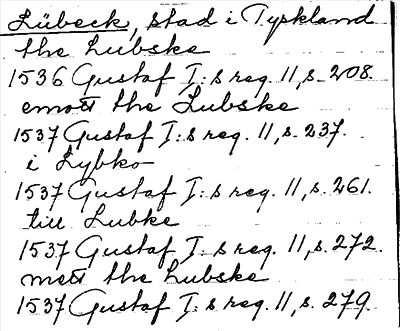 Lübeck, stad i Tyskland
the Lubske
1536 Gustaf I:s reg. 11, s. 208.
emott the Lubske
1537 Gustaf I:s reg. 11, s. 237.
i Lybko
1537 Gustaf I:s reg. 11, s. 261.
till Lubke
1537 Gustaf I:s reg. 11, s. 272.
mott the Lubske
1537 Gustaf I:s reg. 11, s. 279.